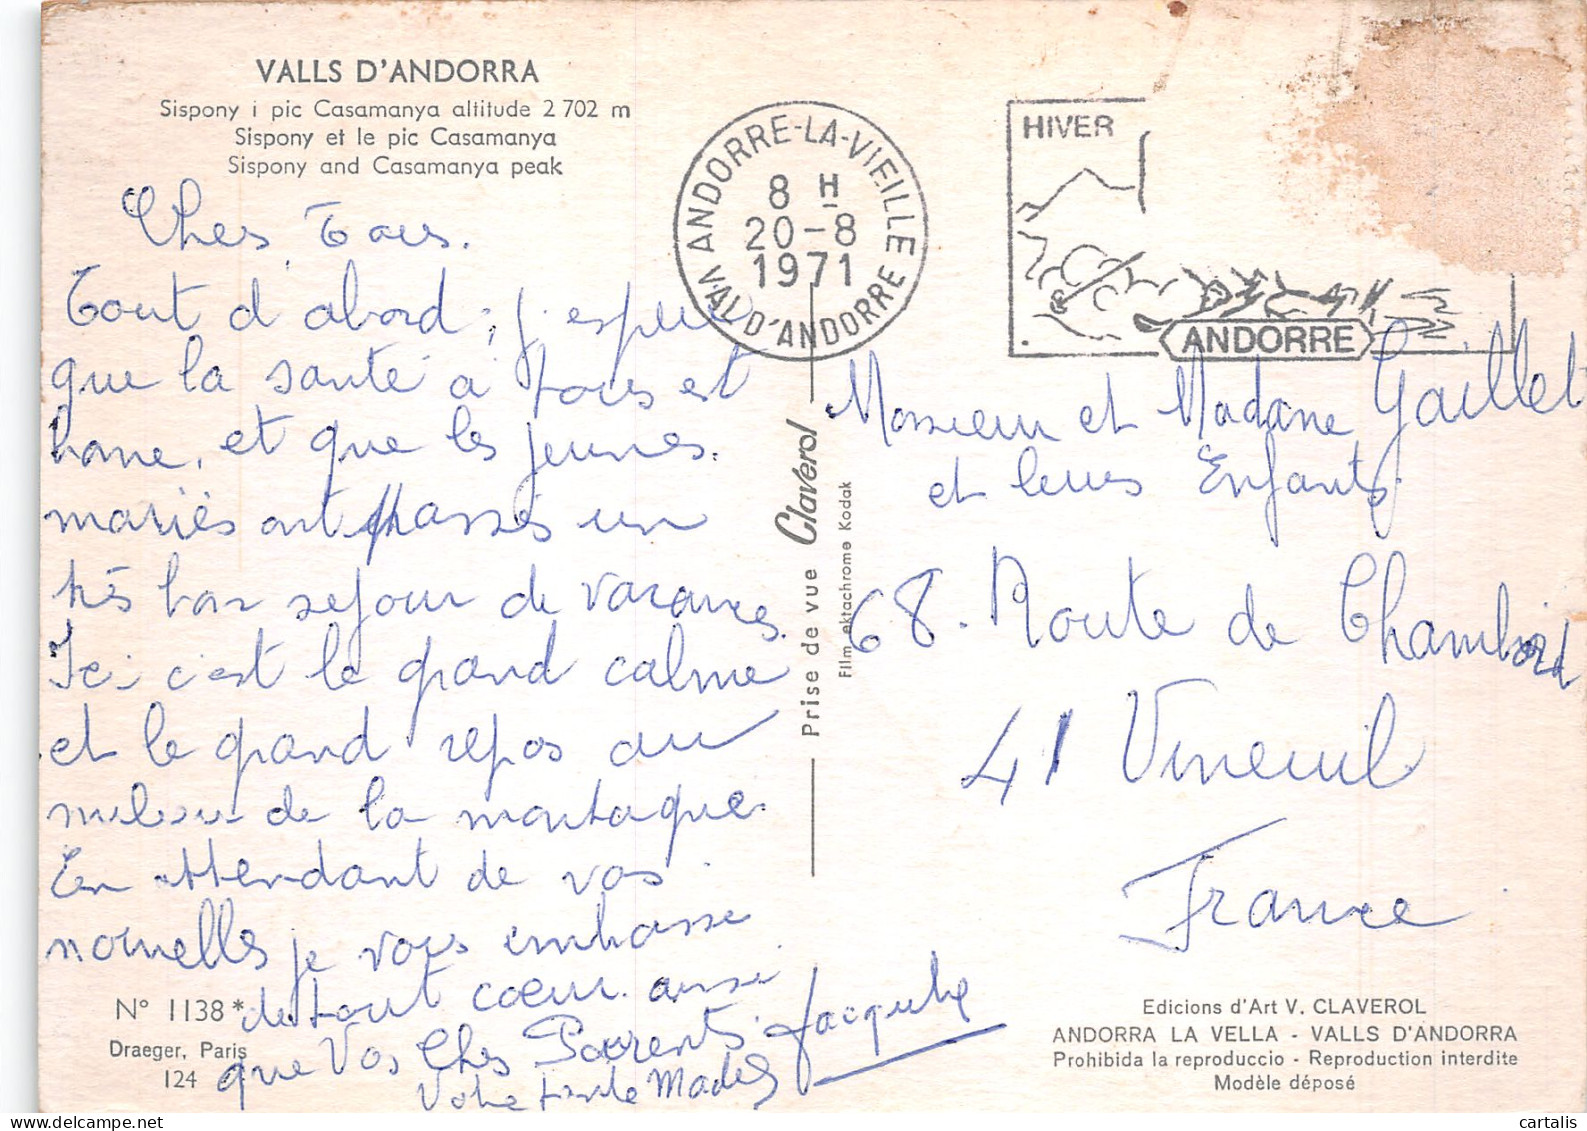 VALLS D'ANDORRA
Sispony i pic Casamanya altitude 2 702 m
Sispony et le pic Casamanya
Sispony and Casamanya peak
ANDORRE-LA-VIEILLE
8 H
20-8
1971
VAL D'ANDORRE
HIVER
ANDORRE
Chers Tous.
Tout d'abord, j'espère
que la santé à tous est
bonne, et que les jeunes
mariés ont passés un
très bon sejour de vacances.
Ici c'est le grand calme
et le grand repos au
milieu de la montagne.
En attendant de vos
nouvelles je vous embrasse
de tout cœur. ainsi
que Vos Chers Parents. Jacqueline
Votre
N° 1138*
Draeger, Paris
124
Prise de vue Claverol
Film ektachrome Kodak
Monsieur et Madame Gaillet
et leurs Enfants.
68. Route de Chambord
41 Vineuil
France
Edicions d'Art V. CLAVEROL
ANDORRA LA VELLA - VALLS D'ANDORRA
Prohibida la reproduccio - Reproduction interdite
Modèle déposé
cartalis